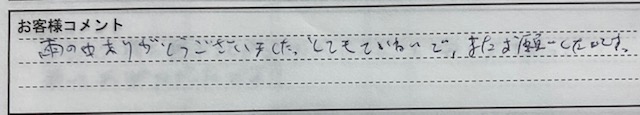 お客様コメント
雨の中ありがとうございました。とてもていねいで、またお願いしたいです。